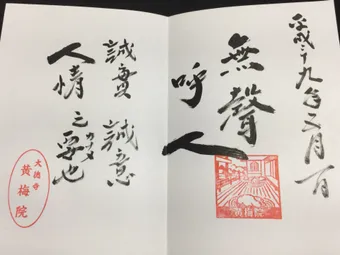 平成二十九年三月一日
無聲
呼人
黄梅院
誠實 誠意
人情之要也
カナメ
大徳寺
黄梅院